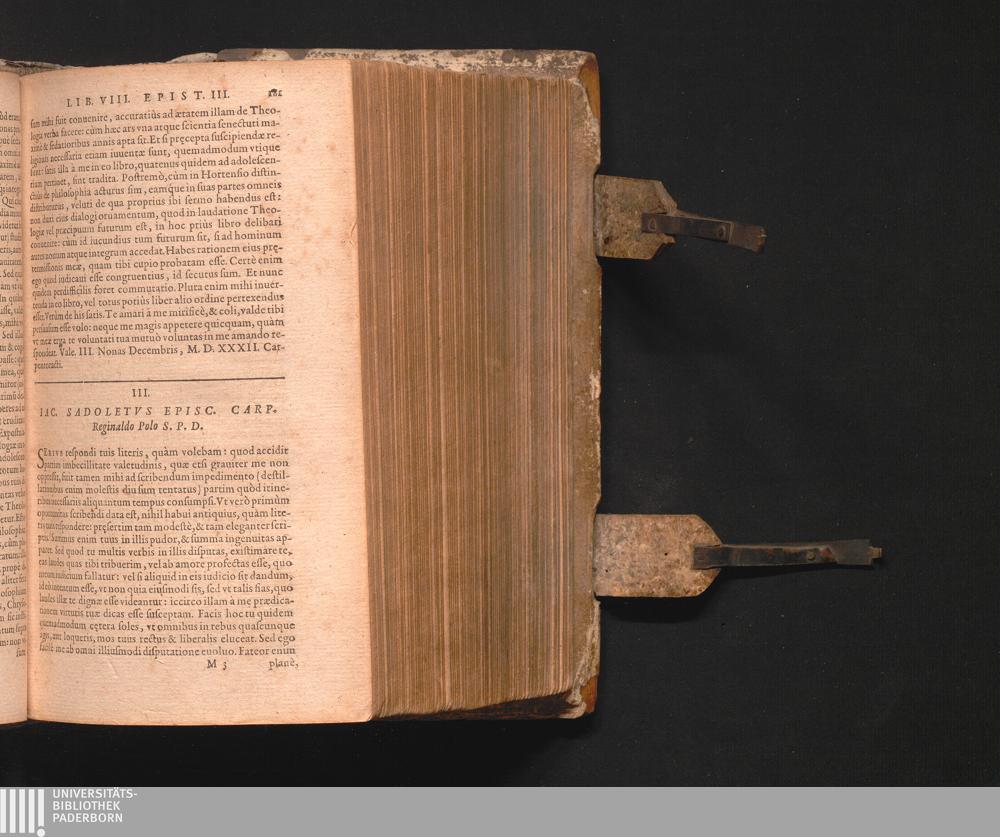 LIB. VIII. EPIST. III. 181
sum mihi fuit conuenire, accuratiùs ad ætatem illam de Theo-
logia verba facere: cùm hæc ars vna atque scientia senectuti ma-
ximè & sedatioribus annis apta sit. Et si pręcepta suscipiendæ re-
ligionis necessaria etiam iuuentæ sunt, quemadmodum vtique
sunt: satis illa à me in eo libro, quatenus quidem ad adolescen-
tiam pertinet, sint tradita. Postremò, cùm in Hortensio distin-
ctiùs de philosophia acturus sim, eamq́ue in suas partes omneis
distributurus, veluti de qua proprius ibi sermo habendus est:
non duxi eius dialogi ornamentum, quod in laudatione Theo-
logiæ vel præcipuum futurum est, in hoc priùs libro delibari
conuenire: cùm id iucundius tum futurum sit, si ad hominum
aures nouum atque integrum accedat. Habes rationem eius prę-
termissionis meæ, quam tibi cupio probatam esse. Certè enim
ego quod iudicaui esse congruentius, id secutus sum. Et nunc
quidem perdifficilis foret commutatio. Pluta enim mihi inuer-
tenda in eo libro, vel totus potiùs liber alio ordine pertexendus
esset. Verùm de his satis. Te amari à me mirificè, & coli, valde tibi
persuasum esse volo: neque me magis appetere quicquam, quàm
vt meæ erga te voluntati tua mutuò voluntas in me amando re-
spondeat. Vale. III. Nonas Decembris, M. D. XXXII. Car-
pentoracti.
III.
IAC. SADOLETVS EPISC. CARP.
Reginaldo Polo S. P. D.
SERIVS respondi tuis literis, quàm volebam: quod accidit
partim imbecillitate valetudinis, quæ etsi grauiter me non
oppressit, fuit tamen mihi ad scribendum impedimento (destil-
lationibus enim molestis diu sum tentatus) partim quòd itine-
ribus necessariis aliquantum tempus consumpsi. Vt verò primùm
oportunitas scribendi data est, nihil habui antiquius, quàm lite-
ris tuis respondere: pręsertim tam modestè, & tam eleganter scri-
ptis. Summus enim tuus in illis pudor, & summa ingenuitas ap-
paret. Sed quod tu multis verbis in illis disputas, existimare te,
eas laudes quas tibi tribuerim, vel ab amore profectas esse, quo
meum iudicium fallatur: vel si aliquid in eis iudicio sit dandum,
id eò intentum esse, vt non quia eiusmodi sis, sed vt talis fias, quo
laudes illæ te dignæ esse videantur: iccirco illam à me prædica-
tionem virtutis tuæ dicas esse susceptam. Facis hoc tu quidem
quemadmodum cętera soles, vt omnibus in rebus quascunque
agis, aut loqueris, mos tuus rectus & liberalis eluceat. Sed ego
facilè me ab omni illiusmodi disputatione euoluo. Fateor enim
M 3 planè,
UNIVERSITÄTS-
BIBLIOTHEK
PADERBORN